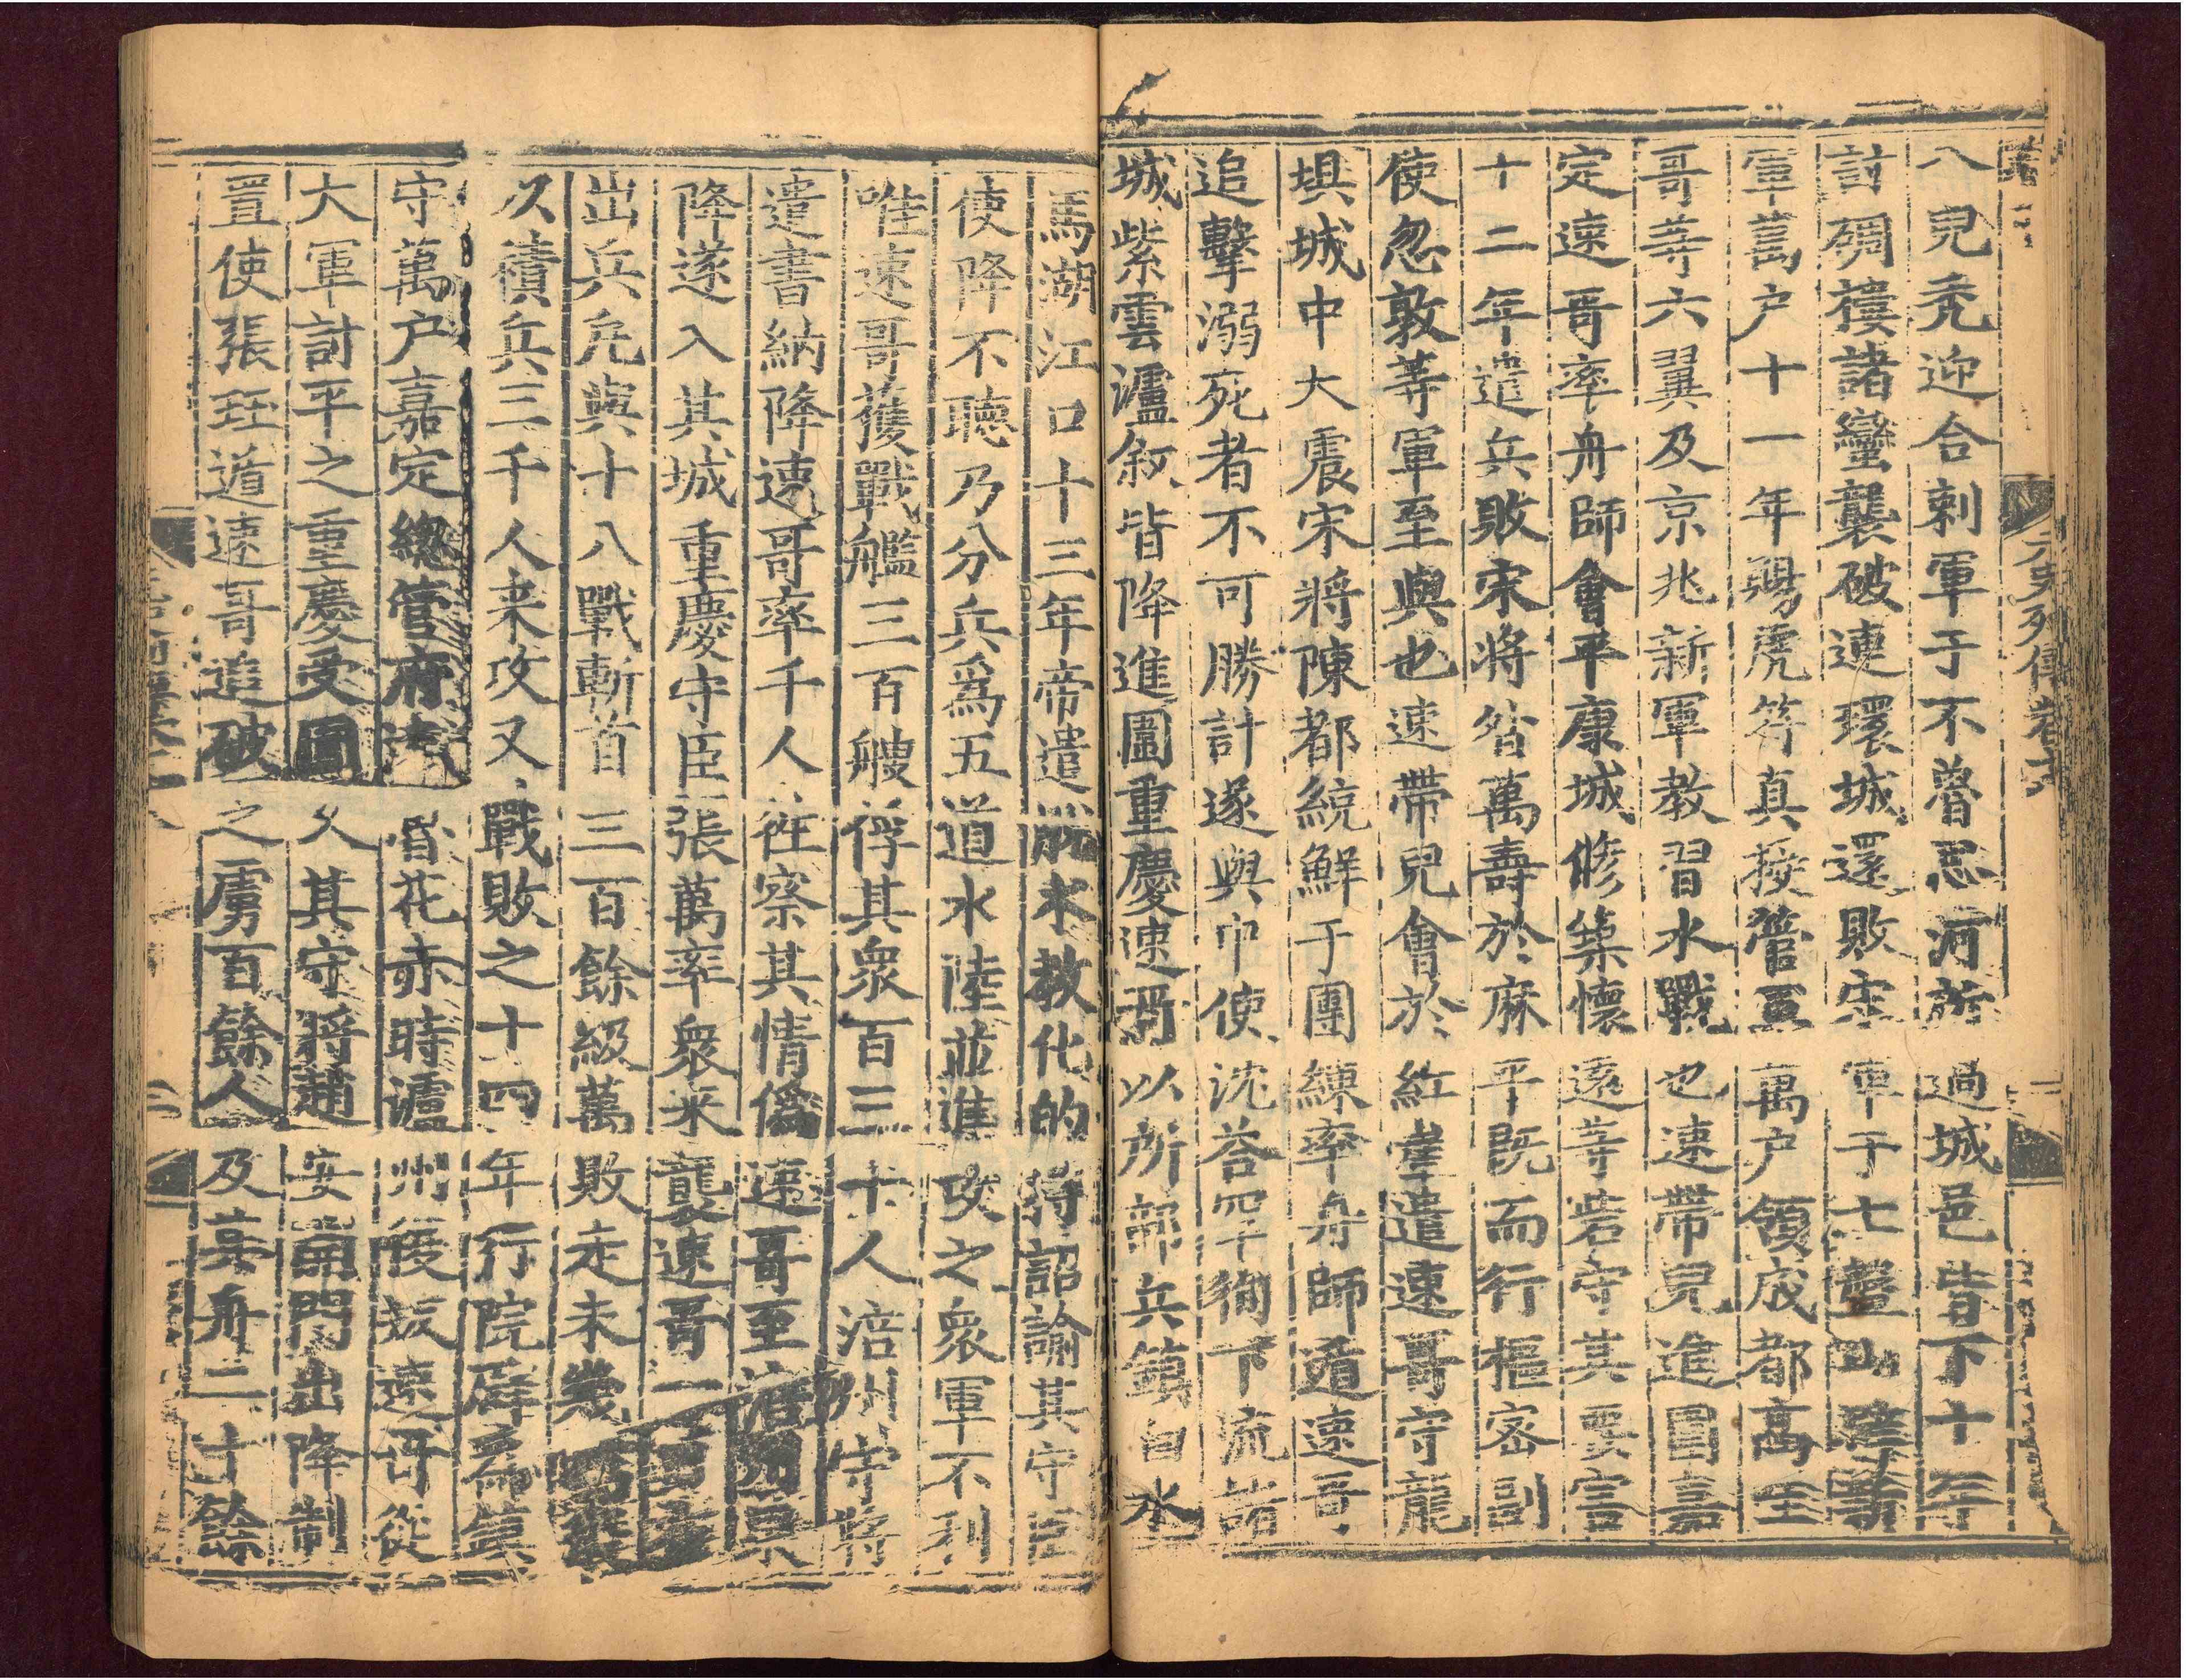 八兒禿迎合剌軍于不魯思河所過城邑皆下十年
討碉樓諸蠻襲破連環城還敗宋軍于七盤山
軍萬户十一年賜虎符真授管軍萬户領成都高
哥等六翼及京兆新軍教習水戰也速帶兒進圍嘉
定速哥率舟師會平康城修築懷遠等砦守其要害
十二年遣兵敗宋將昝萬壽於麻平既而行樞密副
使忽敦等軍至與也速帶兒會於紅崖遣速哥守龍
垻城中大震宋將陳都統鮮于團練率舟師遁速哥
追擊溺死者不可勝計遂與中使沈荅罕徇下流諸
城紫雲瀘敘皆降進圍重慶速哥以所部兵鎮白水
馬湖江口十三年帝遣脫朮教化的持詔諭其守臣
使降不聽乃分兵爲五道水陸並進攻之衆軍不利
唯速哥獲戰艦三百艘俘其衆百三十人涪州守將
遣書納降速哥率千人往察其情僞速哥至涪州果
降遂入其城重慶守臣張萬率衆來襲速哥一日
出兵凡與十八戰斬首三百餘級萬敗走未幾
久積兵三千人來攻又戰敗之十四年行院辟爲鎮
守萬户嘉定總管府達魯花赤時瀘州復叛速哥從
大軍討平之重慶受圍久其守將趙安開門出降制
置使張珏遁速哥追破之虜百餘人及其舟二十餘